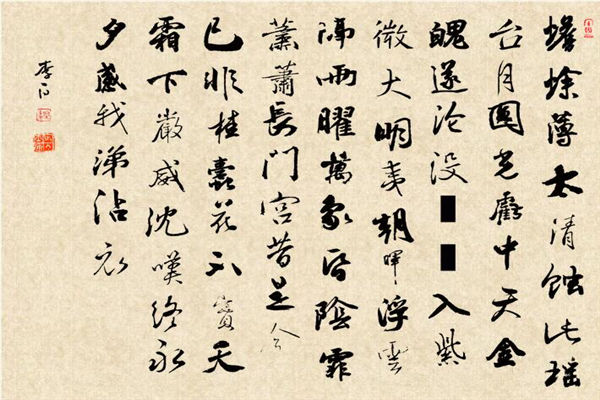 蟾蜍薄太清蝕此瑶
台月圓光虧中天金
魄遂沦没■■入紫
微大明夷朝暉浮雲
隔兩曜萬象昏陰霏
蕭蕭長門宮昔是今
已非桂蠹花不實天
霜下嚴威沈嘆終永
夕感我涕沾衣
李白